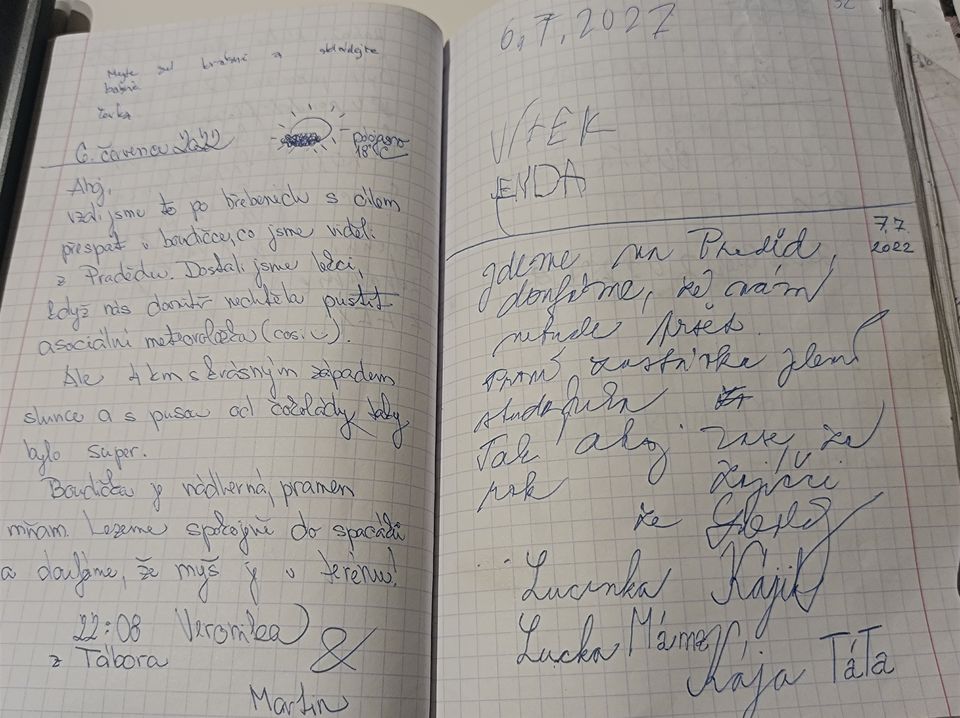 Mějte se krásně a
Lenka
6. července 2022
polojasno
18°C
Ahoj,
vzali jsme to po hřebenech s cílem
přespat v boudičce, co jsme viděli
z Pradědu. Dostali jsme lekci,
když nás dovnitř nechtěla pustit
asociální meteoroložka (cosi).
Ale 4 km s krásným západem
slunce a s pusou od čokolády taky
bylo super.
Boudička je nádherná, pramen
mňam. Lezeme spokojeně do spacáků
a doufáme, že myš je v terénu!
22:08 Veronika
z Tábora
&
Martin
6.7.2022
VÍTEK
ENDA
7.7
2022
Jdeme na Praděd,
doufáme, že nám
nebude pršet.
První zastávka Jelení
studánka
Tak ahoj zase za
rok
ze
Lucinka Kájik
Lucka Máma
Kája TáTa